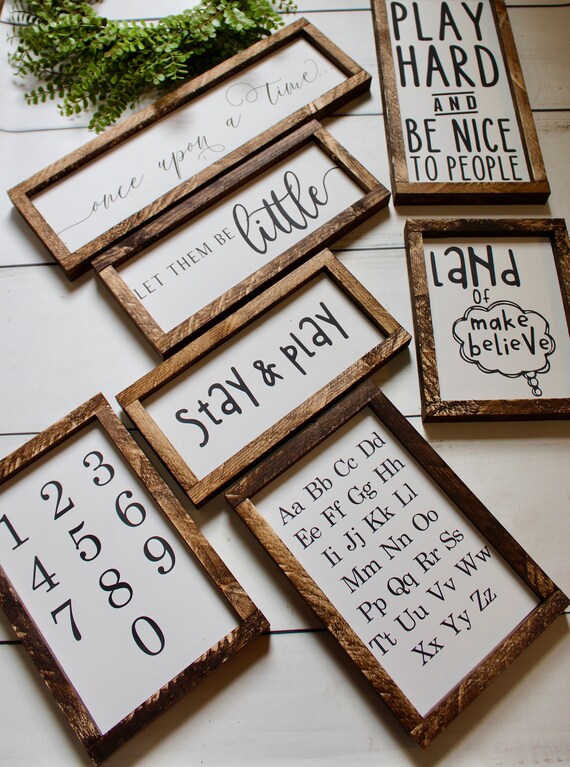 once upon a time...
LET THEM BE little
PLAY
HARD
AND
BE NICE
TO PEOPLE
LaNd
of
make
believe
Stay & play
1 2 3
4 5 6
7 8 9
0
Aa Bb Cc Dd
Ee Ff Gg Hh
Ii Jj Kk Ll
Mm Nn Oo
Pp Qq Rr Ss
Tt Uu Vv Ww
Xx Yy Zz